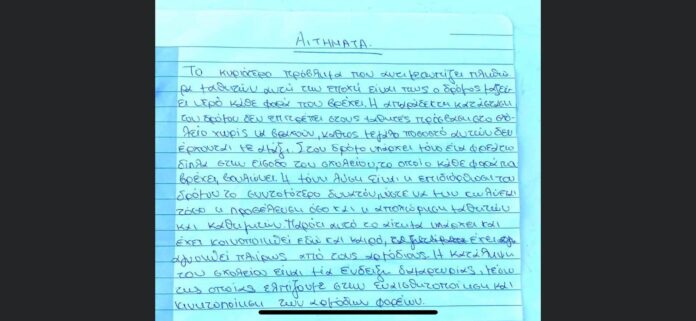 ΑΙΤΗΜΑΤΑ.
Το κυριότερο πρόβλημα που αντιμετωπίζει πληθώ
ρα μαθητών αυτή την εποχή είναι πως ο δρόμος μαζεύ
ει νερό κάθε φορά που βρέχει. Η απαράδεκτη κατάσταση
του δρόμου δεν επιτρέπει στους μαθητές πρόσβαση στο σχο
λείο χωρίς να βραχούν, καθώς μεγάλο ποσοστό αυτών δεν
έρχονται με αμάξι. Στον δρόμο υπάρχει μόνο ένα φρεάτιο
δίπλα στην είσοδο του σχολείου, το οποίο κάθε φορά που
βρέχει, βουλώνει. Η μόνη λύση είναι η επιδιόρθωση του
δρόμου το συντομότερο δυνατόν, ώστε να μην κωλύεται
τόσο η προσέλευση όσο και η αποχώρηση μαθητών
και καθηγητών. Παρότι αυτό το αίτημα υπάρχει και
έχει κοινοποιηθεί εδώ και καιρό, έχει
αγνοηθεί πλήρως από τους αρμόδιους. Η κατάληψη
του σχολείου είναι μία ένδειξη διαμαρτυρίας, μέσω
της οποίας ελπίζουμε στην ευαισθητοποίηση και
κινητοποίηση των αρμόδιων φορέων.